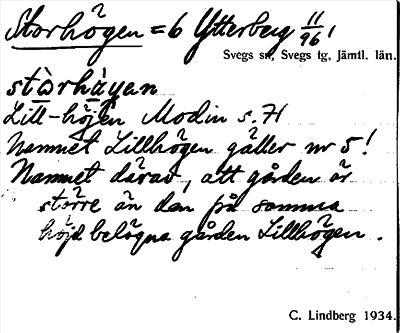 Storhögen = 6 Ytterberg 11/96 1
Svegs sn, Svegs tg, Jämtl. län.
stòrhàγan
Lill-höjen Modin s. 71
Namnet Lillhögen gäller nr 5!
Namnet därav, att gården är
större än den på samma
höjd belägna gården Lillhögen.
C. Lindberg 1934.